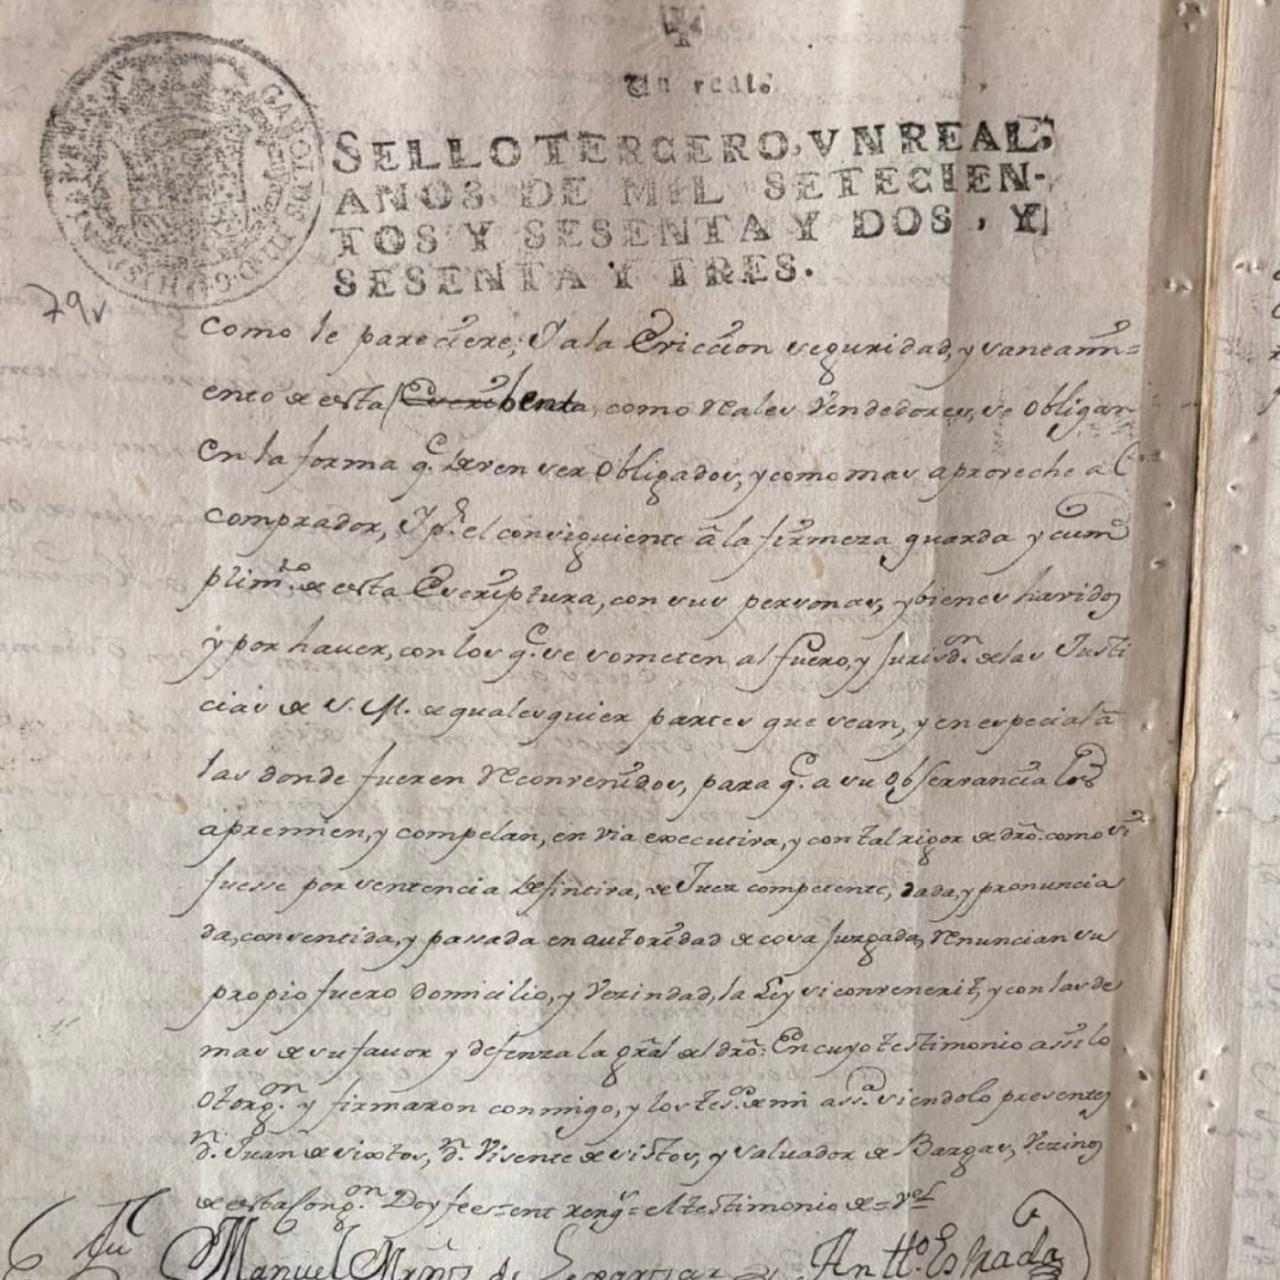 Un real.
SELLO TERCERO, VN REAL,
AÑOS DE MIL SETECIEN-
TOS Y SESENTA Y DOS, Y
SESENTA Y TRES.
CAROLUS III D G
79v
como le pareciere; Y a la Ericcion seguridad, y saneami=
ento de esta benta, como Rales Vendedores, se obligan
en la forma q.e deven ser obligados, y como mas aproveche al
comprador, Y p.r el consiguiente â la firmeza guarda y cum
plim.to de esta Escriptura, con sus personas, y bienes havidos
y por haver, con los q.e se someten al fuero, y Jurisd.on de las Justi
cias de S. M. de qualesquier partes que sean, y en especial â
las donde fueren Reconvenidos, para q.e a su observancia los
apremien, y compelan, en via executiva, y con tal rigor de dro. como si
fuesse por sentencia definitiva, de Juez competente, dada, y pronuncia
da, consentida, y passada en autoridad de cosa Juzgada, Renuncian su
propio fuero domicilio, y Vezindad, la Ley si convenerit, y con las de
mas de su favor y defenza la gral del dro: En cuyo testimonio assi lo
otorg.on y firmaron conmigo, y los tes.os de mi ass.a siendolo presentes
D.n Juan de sixtos, D.n Visente de sistos, y Salvador de Bargas, Vezinos
de esta Cong.on Doy fee=ent reng.s= el testimonio de=
Manuel Muñz de Ant.to Estrada